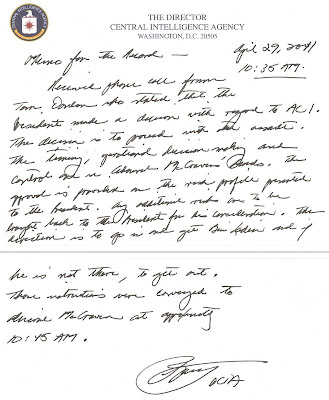 THE DIRECTOR
CENTRAL INTELLIGENCE AGENCY
WASHINGTON, D.C. 20505
Memo for the Record — April 29, 2011
10:35 AM.
Received phone call from
Tom Donilon who stated that the
President made a decision with regard to AC1.
The decision is to proceed with the assault.
The timing, operational decision making and
control are in Admiral McRavens hands. The
approval is provided on the risk profile presented
to the President. Any additional risks are to be
brought back to the President for his consideration. The
direction is to go in and get Bin Laden and if
he is not there, to get out.
Those instructions were conveyed to
Admiral McRaven at approximately
10:45 AM.
DCIA